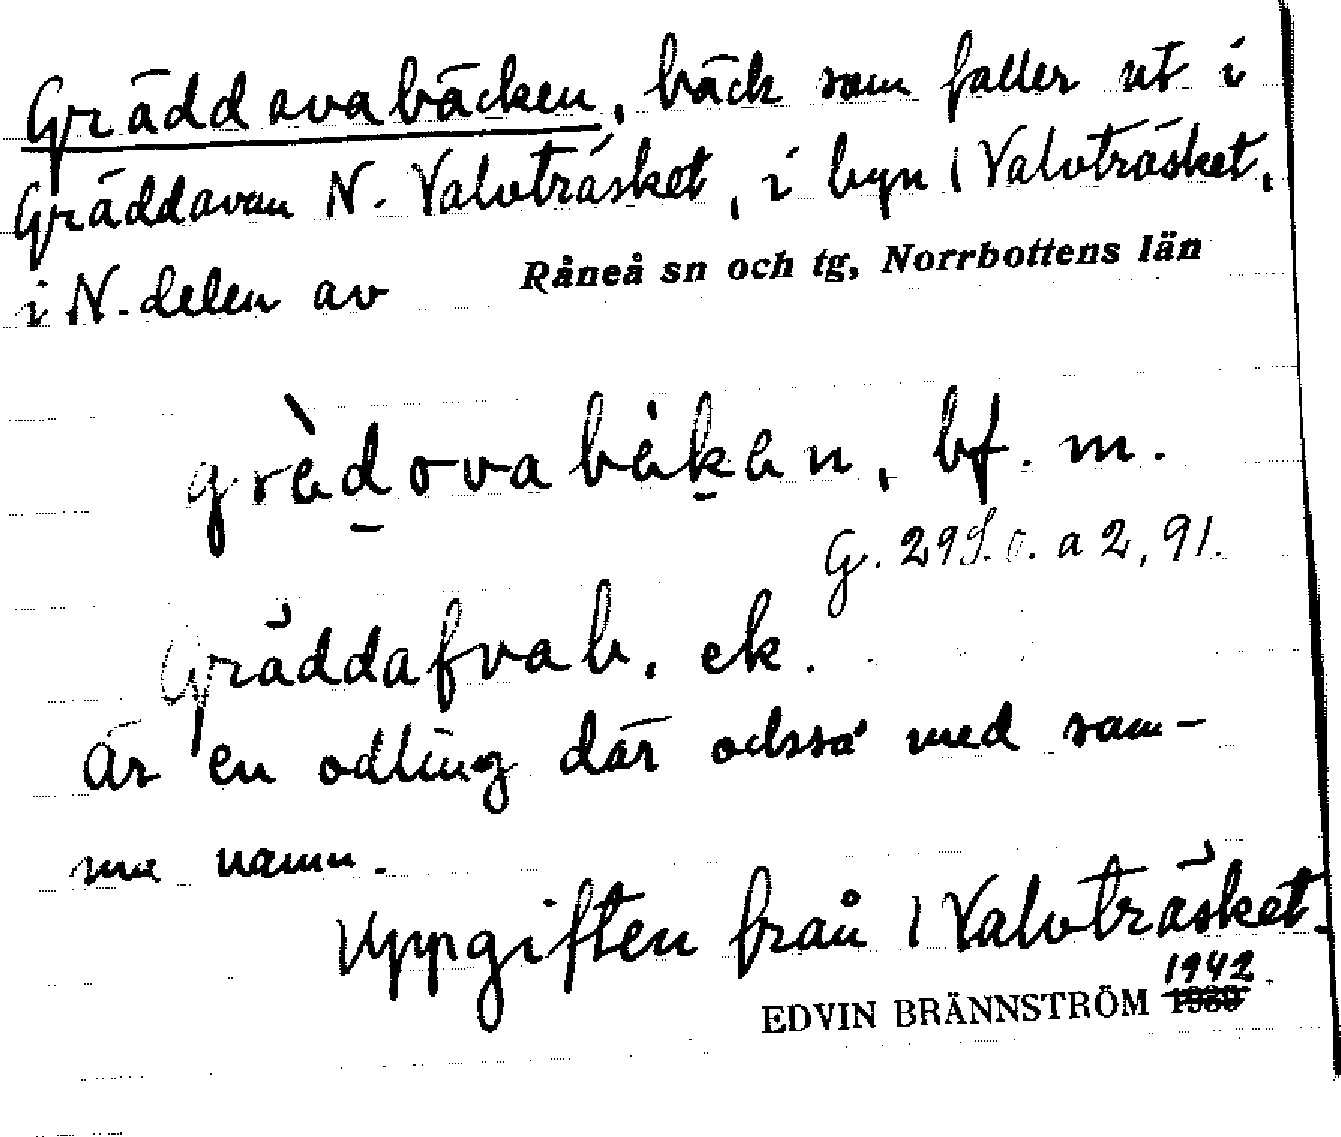 Gräddavabäcken, bäck som faller ut i
Gräddavan N. Valvträsket, i byn 1 Valvträsket,
i N. delen av Råneå sn och tg, Norrbottens län
grèdovabèken, bf. m.
G. 29 a 2, 91.
Gräddafvab. ek.
Är en odling där också med sam-
ma namn.
Uppgiften från 1 Valvträsket.
1942
EDVIN BRÄNNSTRÖM 1939